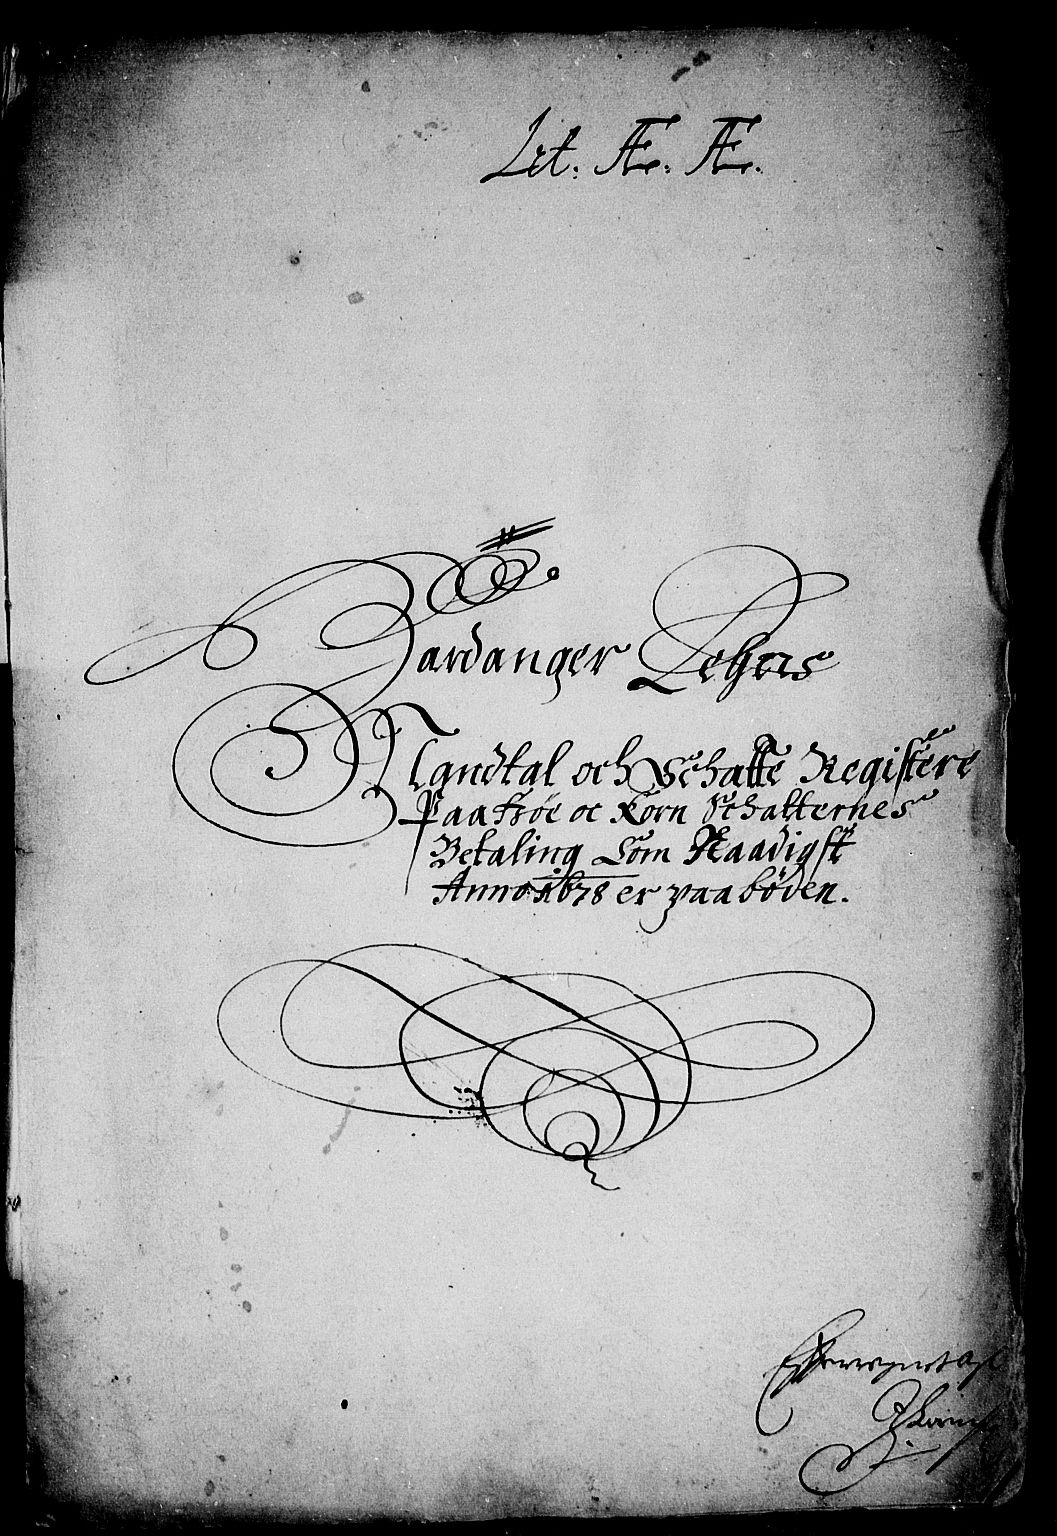 Lit. Æ. Æ.
Hardanger Lehns
Mandtal och Schatte Registere
Paa Koe oc Korn Schatternes
Betaling Som Naadigst
Anno 1678 er paabøden.